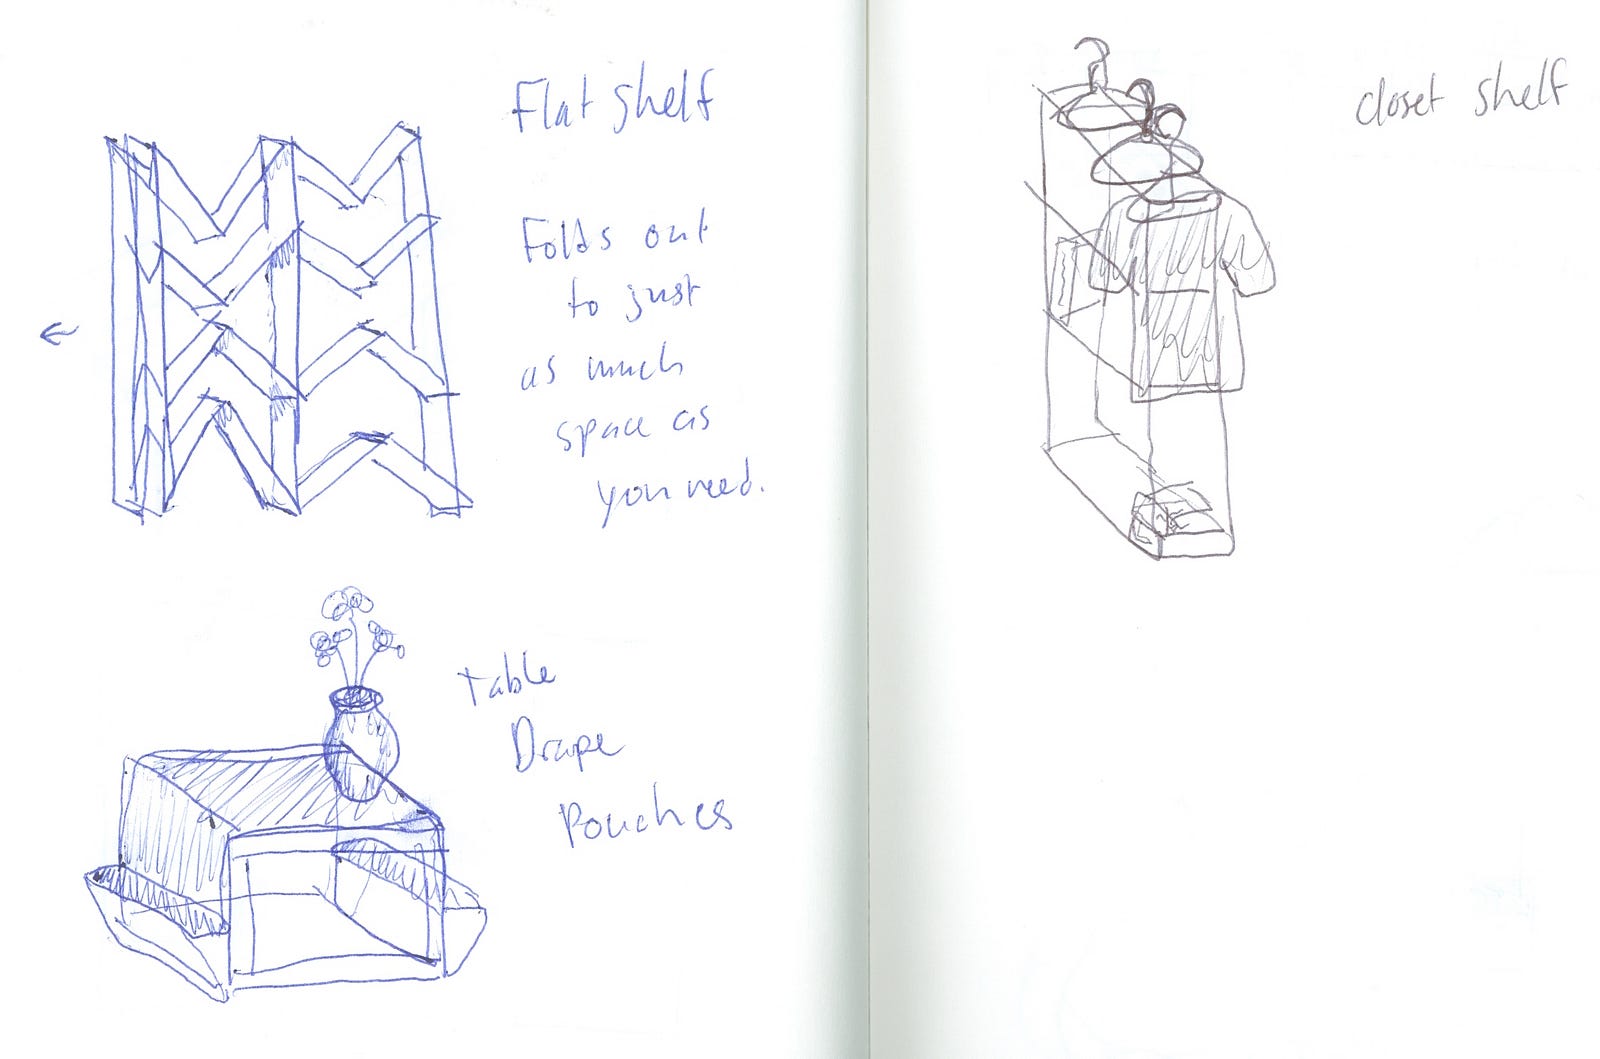 Flat shelf
Folds out
to just
as much
space as
you need.
Table
Drape
Pouches
closet shelf